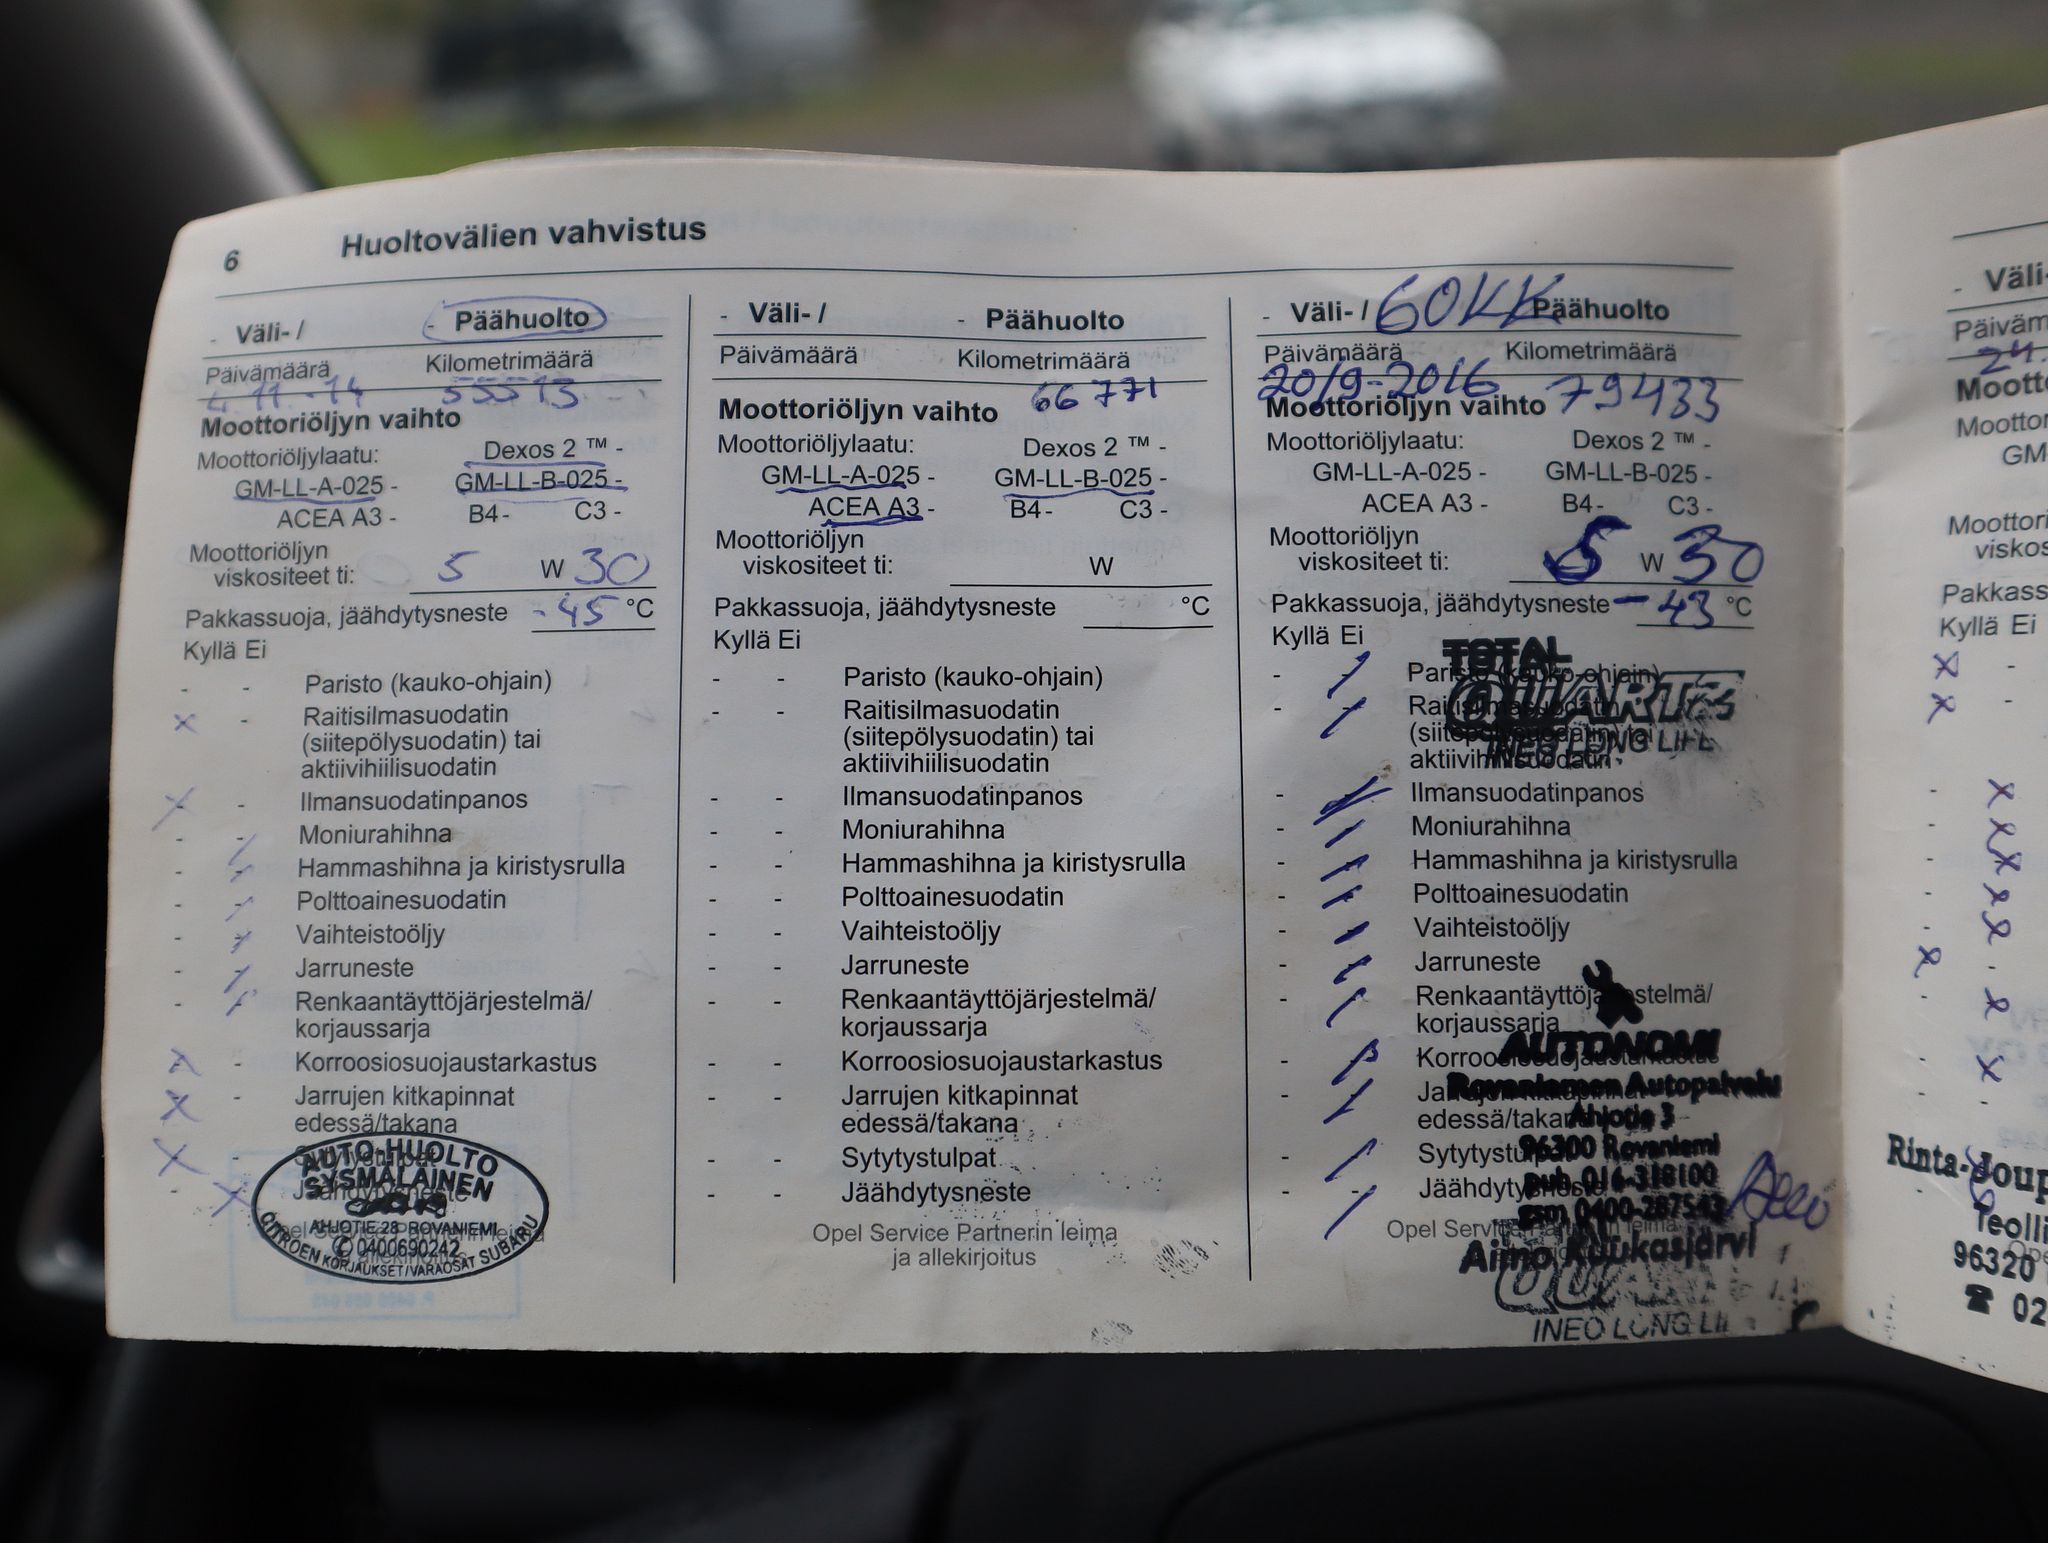 6 Huoltovälien vahvistus
- Väli- / - Päähuolto
Päivämäärä Kilometrimäärä
4.11.-14 55513
Moottoriöljyn vaihto
Moottoriöljylaatu: Dexos 2 ™ -
GM-LL-A-025 - GM-LL-B-025 -
ACEA A3 - B4 - C3 -
Moottoriöljyn
viskositeet ti: 5 W 30
Pakkassuoja, jäähdytysneste - 45 °C
Kyllä Ei
- - Paristo (kauko-ohjain)
x - Raitisilmasuodatin
(siitepölysuodatin) tai
aktiivihiilisuodatin
x - Ilmansuodatinpanos
- / Moniurahihna
- / Hammashihna ja kiristysrulla
- / Polttoainesuodatin
- / Vaihteistoöljy
- / Jarruneste
- / Renkaantäyttöjärjestelmä/
korjaussarja
x - Korroosiosuojaustarkastus
x - Jarrujen kitkapinnat
edessä/takana
x - Sytytystulpat
- x Jäähdytysneste
AUTO-HUOLTO
SYSMÄLÄINEN
AHJOTIE 28 ROVANIEMI
✆ 0400690242
CITROEN KORJAUKSET/VARAOSAT SUBARU
- Väli- / - Päähuolto
Päivämäärä Kilometrimäärä
66 771
Moottoriöljyn vaihto
Moottoriöljylaatu: Dexos 2 ™ -
GM-LL-A-025 - GM-LL-B-025 -
ACEA A3 - B4 - C3 -
Moottoriöljyn
viskositeet ti: W
Pakkassuoja, jäähdytysneste °C
Kyllä Ei
- - Paristo (kauko-ohjain)
- - Raitisilmasuodatin
(siitepölysuodatin) tai
aktiivihiilisuodatin
- - Ilmansuodatinpanos
- - Moniurahihna
- - Hammashihna ja kiristysrulla
- - Polttoainesuodatin
- - Vaihteistoöljy
- - Jarruneste
- - Renkaantäyttöjärjestelmä/
korjaussarja
- - Korroosiosuojaustarkastus
- - Jarrujen kitkapinnat
edessä/takana
- - Sytytystulpat
- - Jäähdytysneste
Opel Service Partnerin leima
ja allekirjoitus
- Väli- / 60KK Päähuolto
Päivämäärä Kilometrimäärä
20/9-2016 79433
Moottoriöljyn vaihto
Moottoriöljylaatu: Dexos 2 ™ -
GM-LL-A-025 - GM-LL-B-025 -
ACEA A3 - B4 - C3 -
Moottoriöljyn
viskositeet ti: 5 W 30
Pakkassuoja, jäähdytysneste - 43 °C
Kyllä Ei
TOTAL
- / Paristo (kauko-ohjain)
QUARTZ
- / Raitisilmasuodatin
(siitepölysuodatin) tai
INEO LONG LIFE
aktiivihiilisuodatin
- / Ilmansuodatinpanos
- / Moniurahihna
- / Hammashihna ja kiristysrulla
- / Polttoainesuodatin
- / Vaihteistoöljy
- / Jarruneste
- / Renkaantäyttöjärjestelmä/
korjaussarja
AUTONOMI
- / Korroosiosuojaustarkastus
Rovaniemen Autopalvelu
- / Jarrujen kitkapinnat
edessä/takana
Ahjotie 3
96300 Rovaniemi
- / Sytytystulpat
puh 016-318100
- / Jäähdytysneste
gsm 0400-287543
Opel Service Partnerin leima
Aimo Kuukasjärvi
INEO LONG LI
Väli-
Päiväm
24.
Mootto
Moottori
GM-
Moottori
viskos
Pakkass
Kyllä Ei
Rinta-Joup
Teolli
96320
☎ 02